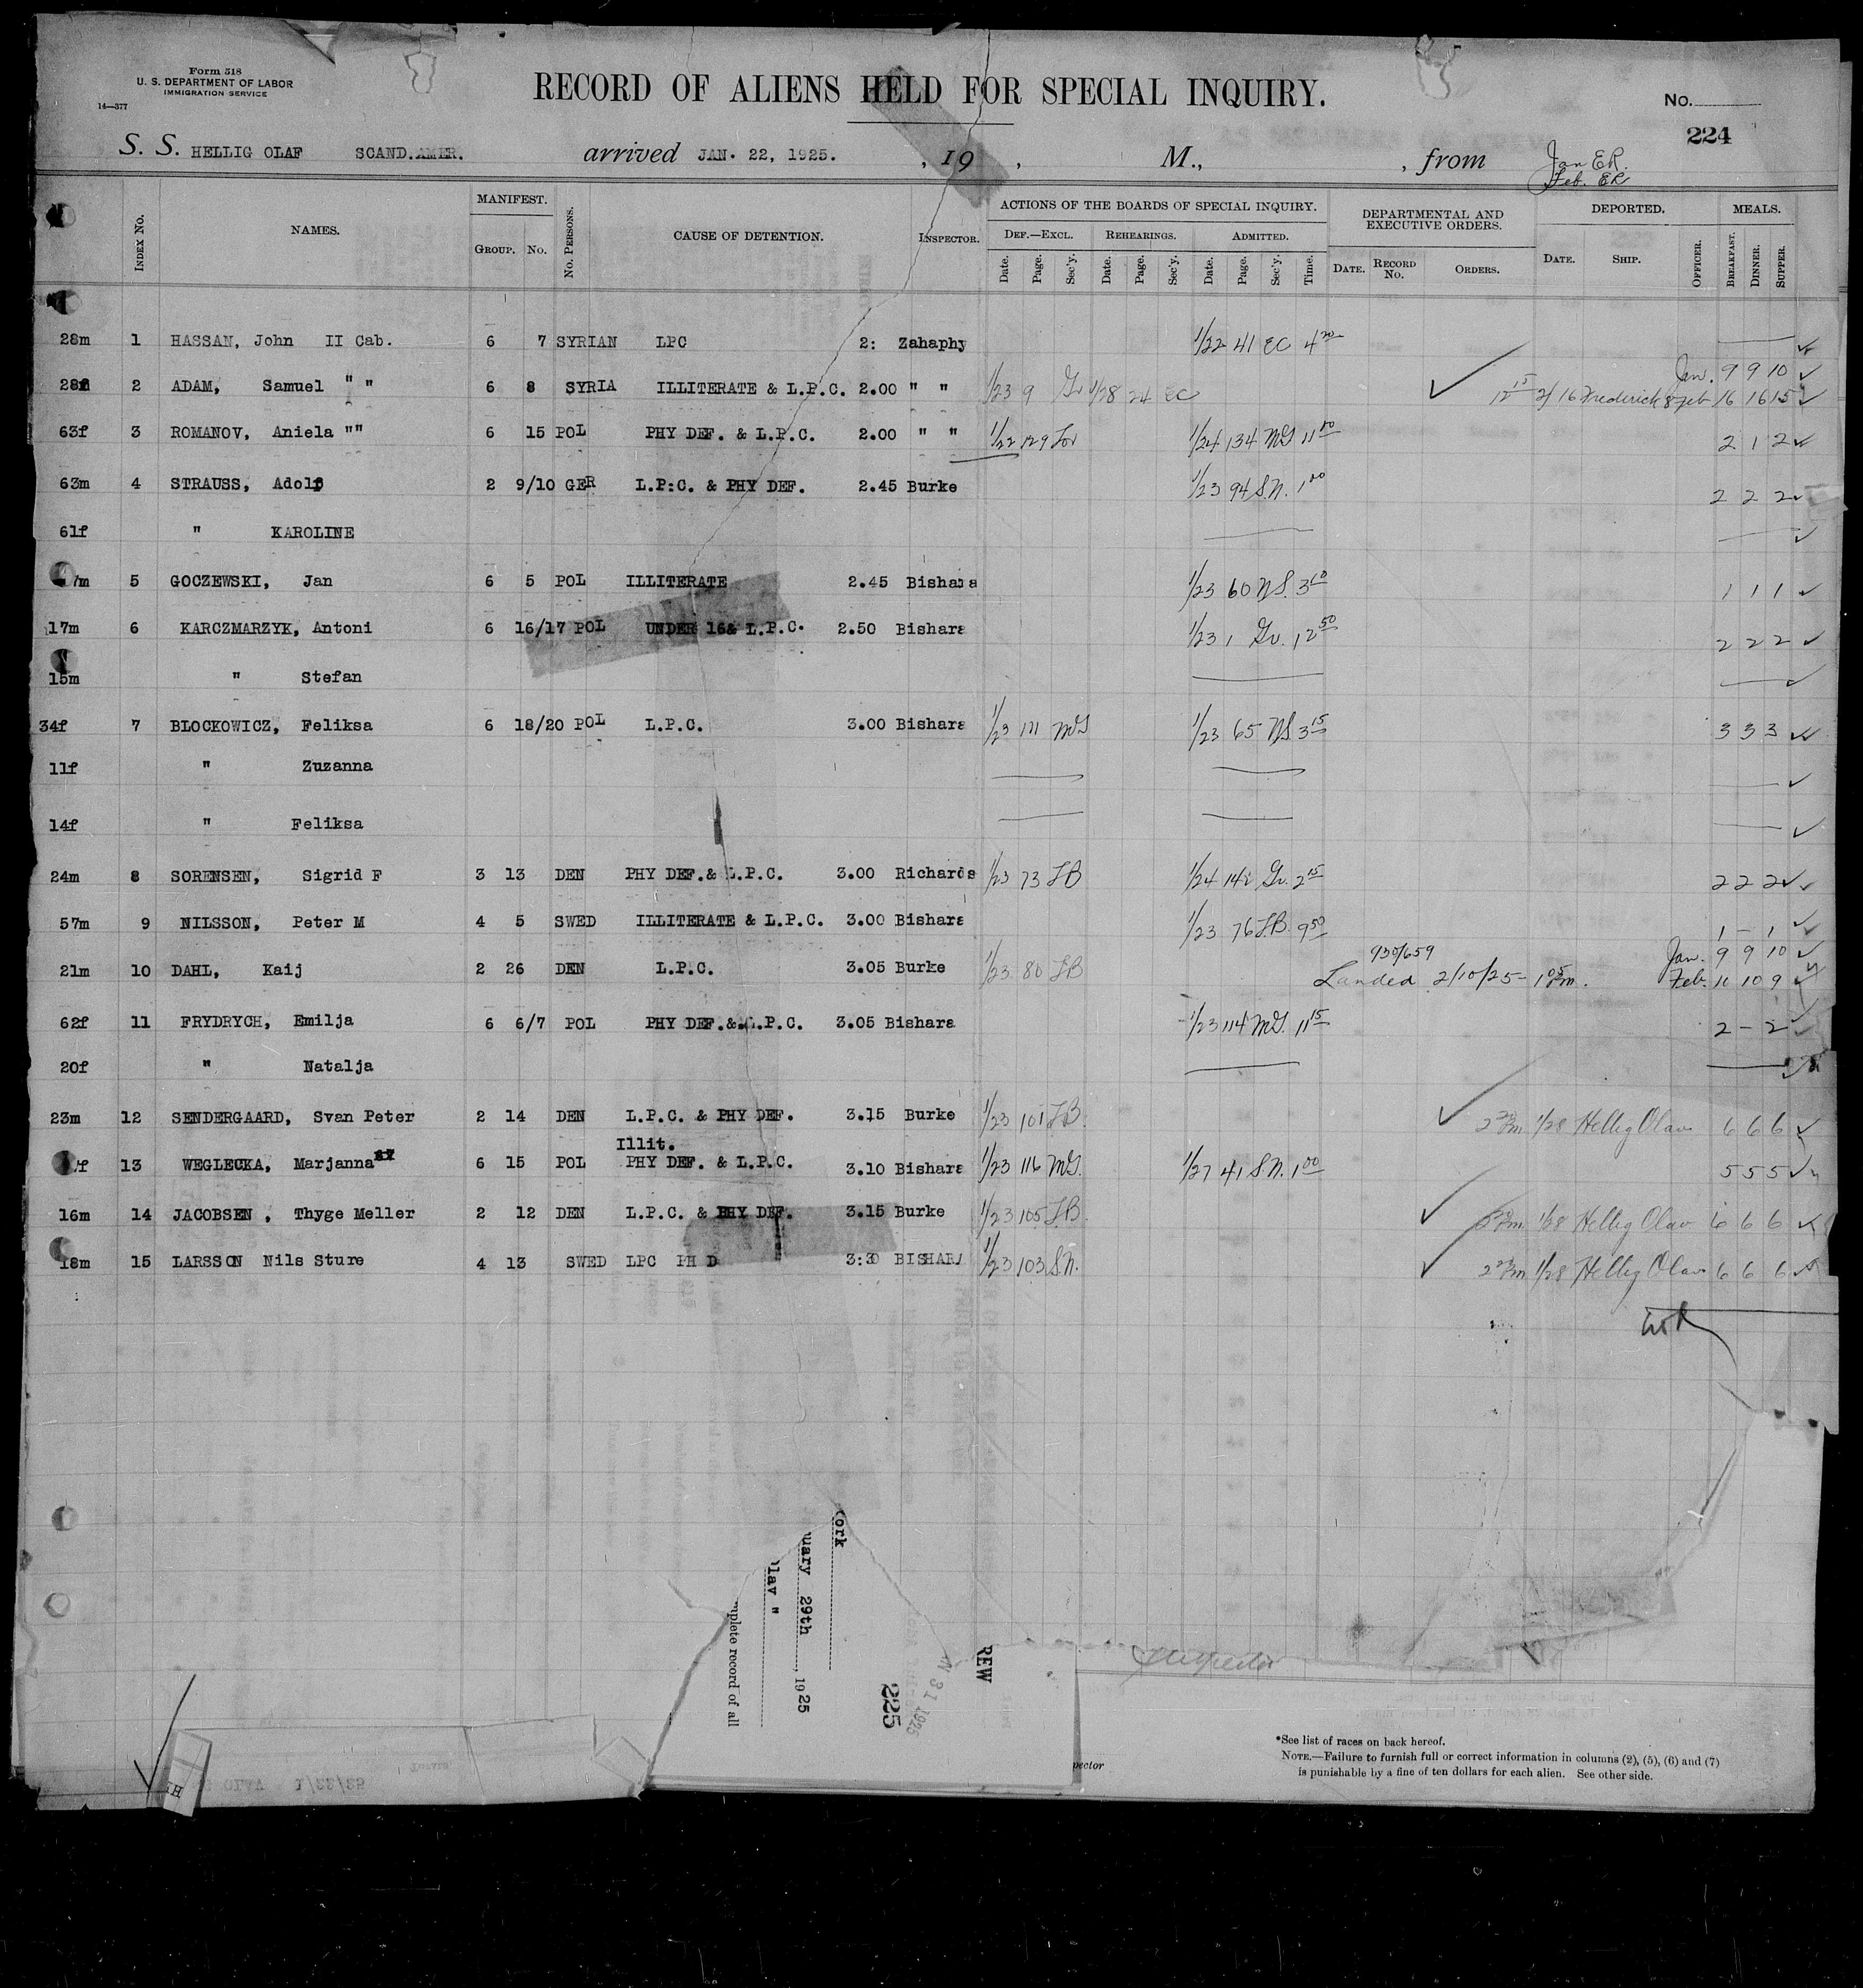 Form 518
U. S. DEPARTMENT OF LABOR
IMMIGRATION SERVICE
14—377
RECORD OF ALIENS HELD FOR SPECIAL INQUIRY.
No.
224
S. S. HELLIG OLAF SCAND.AMER. arrived JAN. 22, 1925. , 19 , M., , from
Jan E.R.
Feb. ER
INDEX No. NAMES. MANIFEST. GROUP. No. No. PERSONS. CAUSE OF DETENTION. INSPECTOR.
ACTIONS OF THE BOARDS OF SPECIAL INQUIRY. DEF.—EXCL. REHEARINGS. ADMITTED.
Date. Page. Sec'y. Date. Page. Sec'y. Date. Page. Sec'y. Time.
DEPARTMENTAL AND EXECUTIVE ORDERS. DATE. RECORD No. ORDERS.
DEPORTED. DATE. SHIP. OFFICER.
MEALS. BREAKFAST. DINNER. SUPPER.
28m 1 HASSAN, John II Cab. 6 7 SYRIAN LPC 2: Zahaphy 1/22 41 EC 4 20
28 2 ADAM, Samuel " " 6 8 SYRIA ILLITERATE & L.P.C. 2.00 " " 1/23 9 Gv 1/28 24 EC Jan. 9 9 10
12 15 2/16 Frederick 8 Feb 16 16 15
63f 3 ROMANOV, Aniela "" 6 15 POL PHY DEF. & L.P.C. 2.00 " " 1/22 129 1/24 134 MG 11 00 2 1 2
63m 4 STRAUSS, Adolf 2 9/10 GER L.P.C. & PHY DEF. 2.45 Burke 1/23 94 S.N. 1 00 2 2 2
61f " KAROLINE
7m 5 GOCZEWSKI, Jan 6 5 POL ILLITERATE 2.45 Bishara 1/23 60 NS. 3 10 1 1 1
17m 6 KARCZMARZYK, Antoni 6 16/17 POL UNDER 16& L.P.C. 2.50 Bishara 1/23 1 Gv. 12 50 2 2 2
15m " Stefan
34f 7 BLOCKOWICZ, Feliksa 6 18/20 POL L.P.C. 3.00 Bishara 1/23 111 MG 1/23 65 NS. 3 15 3 3 3
11f " Zuzanna
14f " Feliksa
24m 8 SORENSEN, Sigrid F 3 13 DEN PHY DEF.& L.P.C. 3.00 Richards 1/23 73 LB 1/24 142 Gv. 2 15 2 2 2
57m 9 NILSSON, Peter M 4 5 SWED ILLITERATE & L.P.C. 3.00 Bishara 1/23 76 LB. 9 50 1 – 1
21m 10 DAHL, Kaij 2 26 DEN L.P.C. 3.05 Burke 1/23 80 LB 930/659 Jan. 9 9 10
Landed 2/10/25 - 1 05 Pm. Feb. 10 10 9
62f 11 FRYDRYCH, Emilja 6 6/7 POL PHY DEF.&.L.P.C. 3.05 Bishara 1/23 114 MG. 11 15 2 – 2
20f " Natalja
23m 12 SENDERGAARD, Svan Peter 2 14 DEN L.P.C. & PHY DEF. 3.15 Burke 1/23 101 LB. 2 30 Pm 1/28 Hellig Olav 6 6 6
Illit.
f 13 WEGLECKA, Marjanna 6 15 POL PHY DEF. & L.P.C. 3.10 Bishara 1/23 116 MG. 1/27 41 S.N. 1 00 5 5 5
16m 14 JACOBSEN , Thyge Meller 2 12 DEN L.P.C. & PHY DEF. 3.15 Burke 1/23 105 LB. 2 30 Pm 1/28 Hellig Olav 6 6 6
18m 15 LARSSON Nils Sture 4 13 SWED LPC PH D 3:30 BISHARA 1/23 103 S.N. 2 30 Pm 1/28 Hellig Olav 6 6 6
ork
uary 29th , 1925
lav "
mplete record of all
225
REW
N 31 1925
pector
*See list of races on back hereof.
NOTE.—Failure to furnish full or correct information in columns (2), (5), (6) and (7)
is punishable by a fine of ten dollars for each alien. See other side.
OLAV 1/22/25